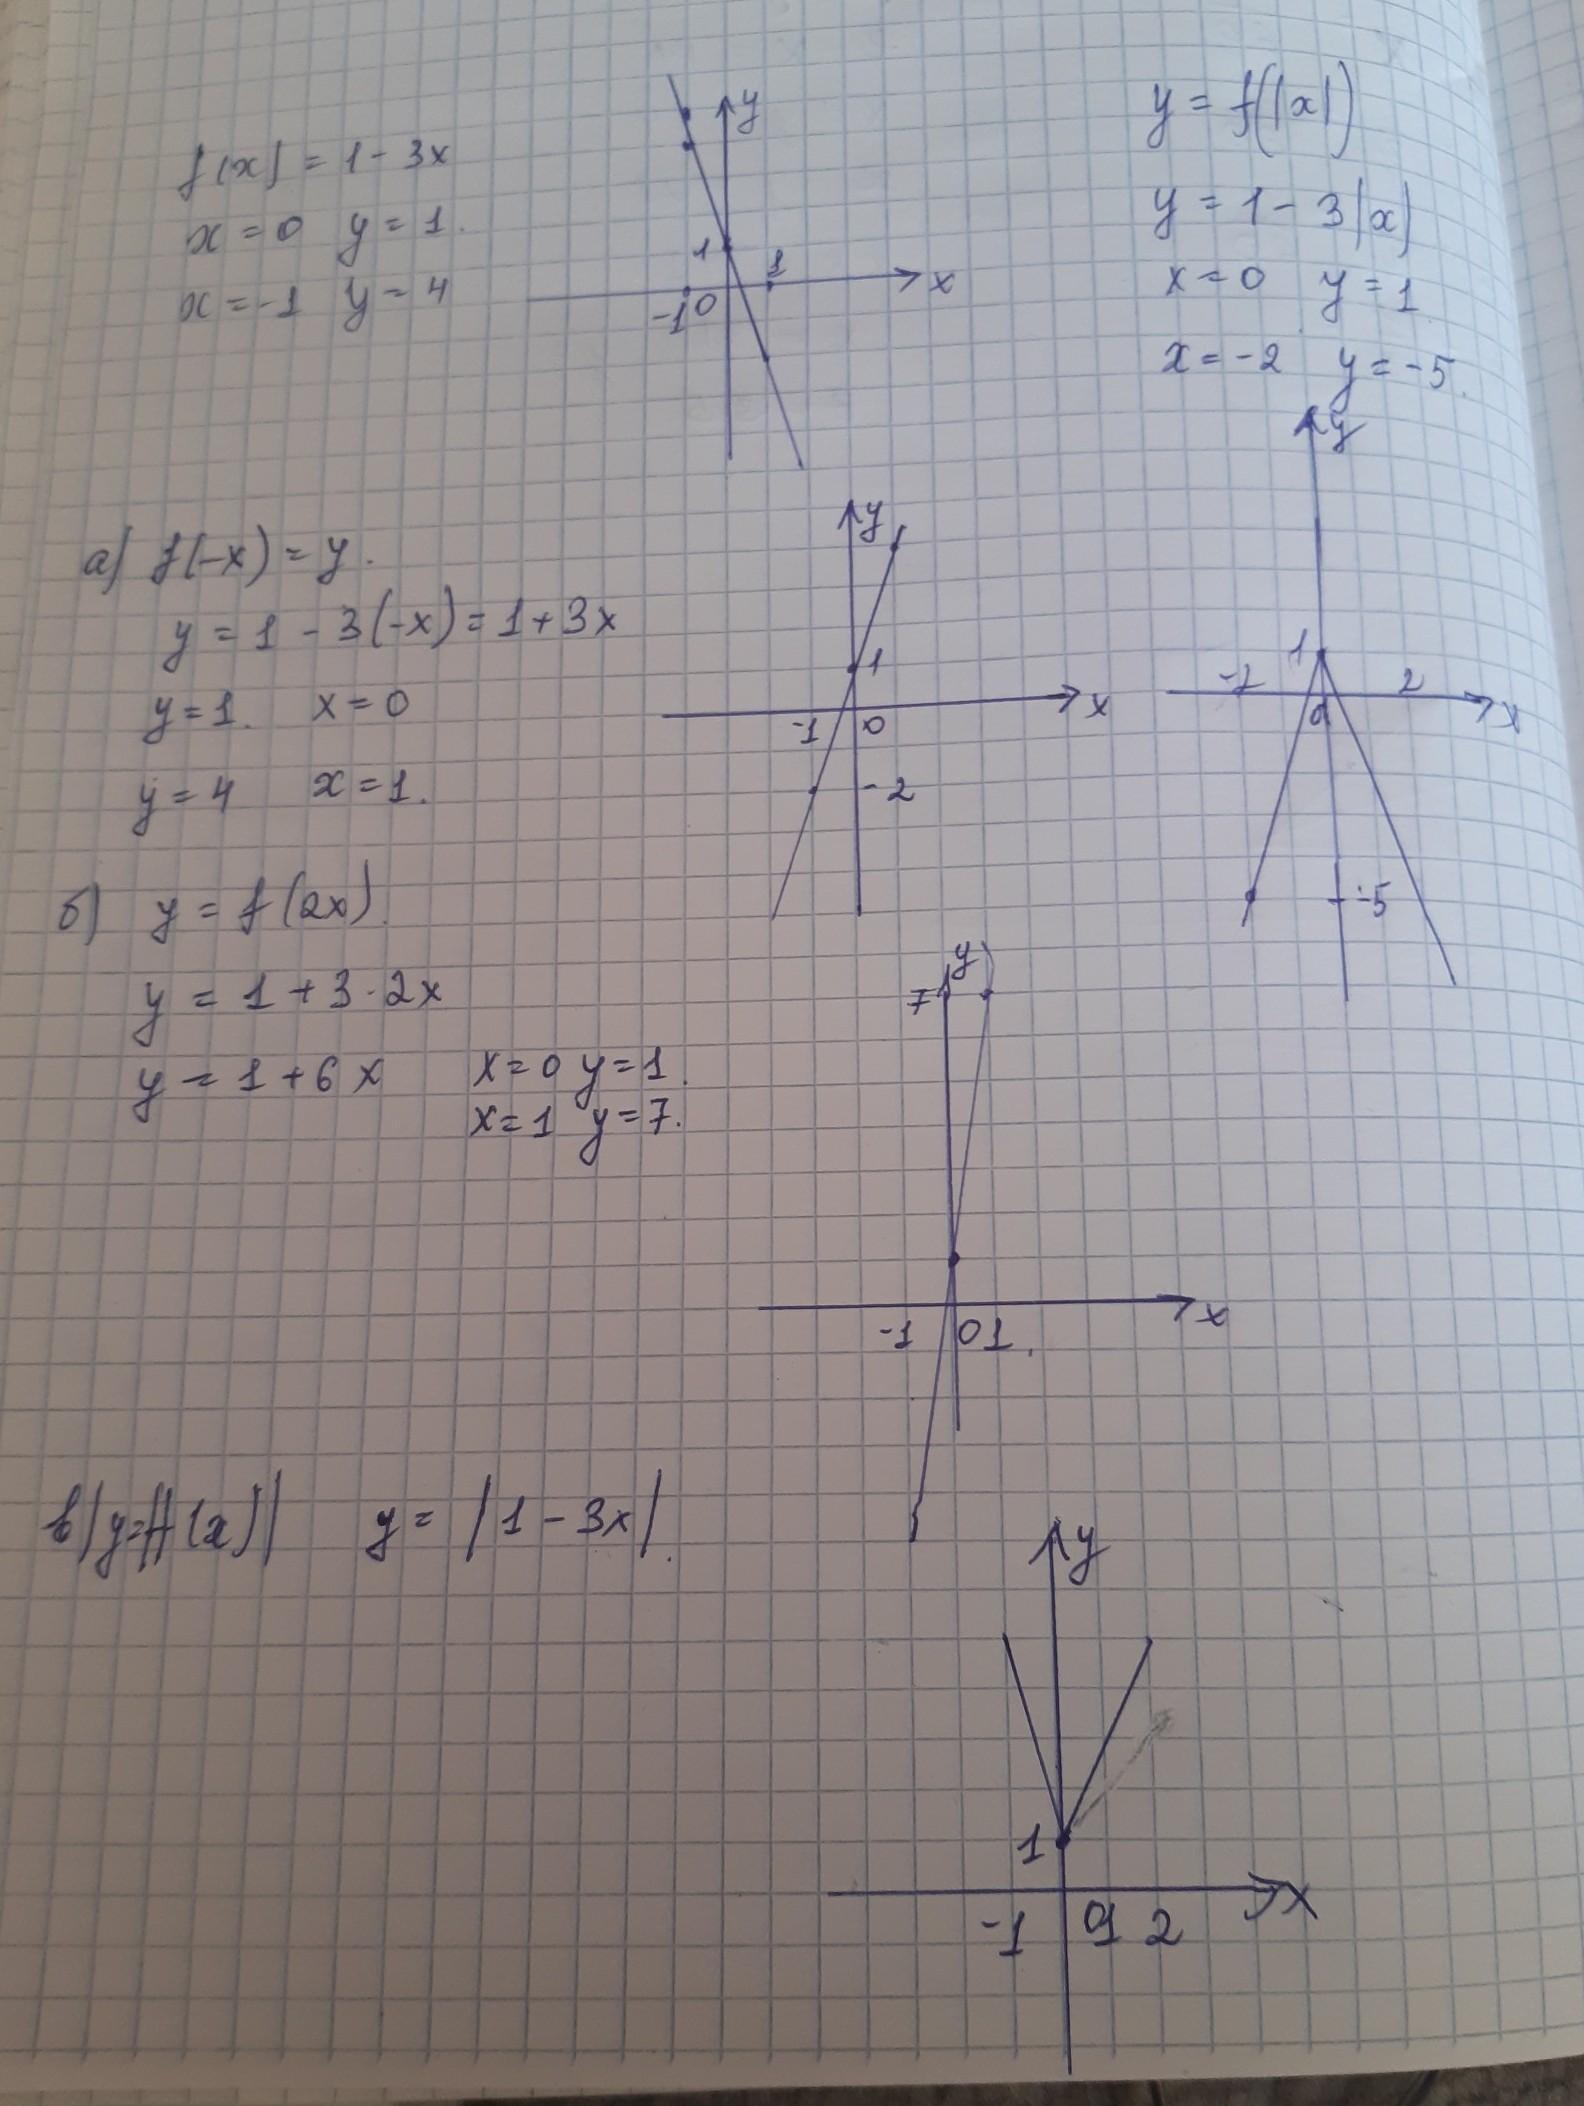 f(x) = 1 - 3x
x = 0 y = 1.
x = -1 y = 4
y
1
1
x
-1 0
y = f(|x|)
y = 1 - 3|x|
x = 0 y = 1
x = -2 y = -5.
y
1
-2
2
0
x
-5
а) f(-x) = y.
y = 1 - 3(-x) = 1 + 3x
y = 1. x = 0
y = 4 x = 1.
y
1
x
-1 0
-2
б) y = f(2x).
y = 1 + 3·2x
y = 1 + 6x
x = 0 y = 1.
x = 1 y = 7.
y
7
x
-1 0 1.
в) y = |f(x)| y = |1 - 3x|.
y
1
x
-1 0 1 2